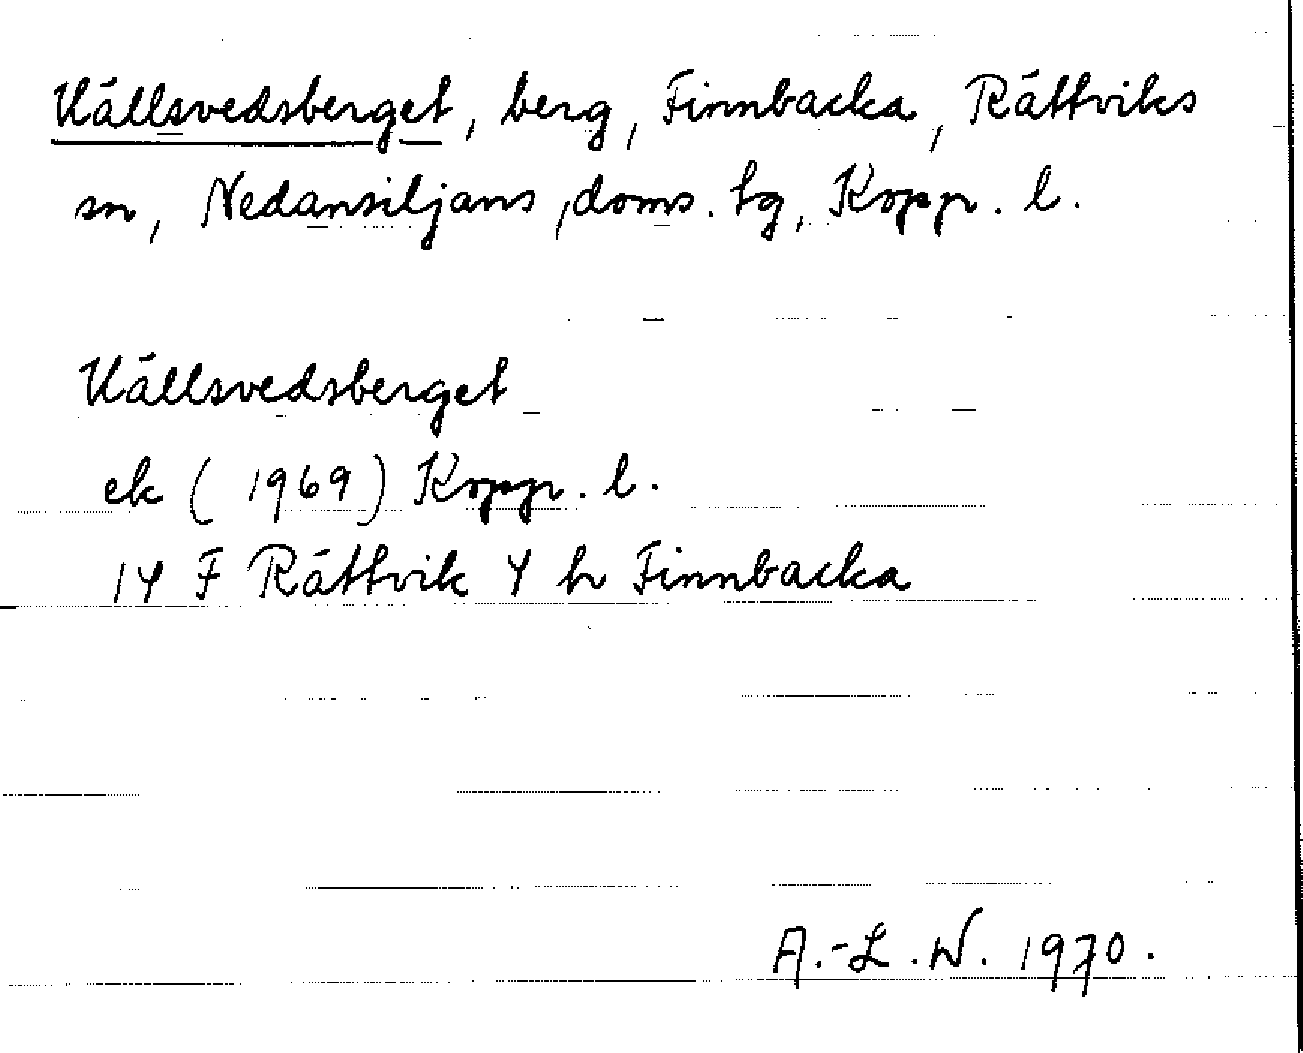 Hällsvedsberget, berg, Finnbacka, Rättviks
sn, Nedansiljans, doms. tg, Kopp. l.
Hällsvedsberget
ek (1969) Kopp. l.
14 F Rättvik 4 h Finnbacka
A.-L.W. 1970.